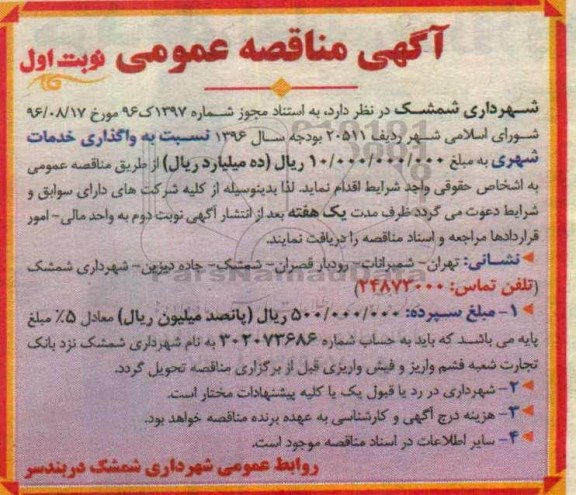 آگهی مناقصه عمومی نوبت اول
شهرداری شمشک در نظر دارد، به استناد مجوز شماره ۱۳۹۷ک۹۶ مورخ ۹۶/۰۸/۱۷
شورای اسلامی شهر ردیف ۲۰۵۱۱ بودجه سال ۱۳۹۶ نسبت به واگذاری خدمات
شهری به مبلغ ۱۰/۰۰۰/۰۰۰/۰۰۰ ریال (ده میلیارد ریال) از طریق مناقصه عمومی
به اشخاص حقوقی واجد شرایط اقدام نماید. لذا بدینوسیله از کلیه شرکت های دارای سوابق و
شرایط دعوت می گردد ظرف مدت یک هفته بعد از انتشار آگهی نوبت دوم به واحد مالی- امور
قراردادها مراجعه و اسناد مناقصه را دریافت نمایند.
نشانی: تهران- شمیرانات- رودبار قصران- شمشک- جاده دیزین- شهرداری شمشک
(تلفن تماس: ۲۴۸۷۲۰۰۰)
۱- مبلغ سپرده: ۵۰۰/۰۰۰/۰۰۰ ریال (پانصد میلیون ریال) معادل ۵٪ مبلغ
پایه می باشد که باید به حساب شماره ۳۰۲۰۷۳۶۸۶ به نام شهرداری شمشک نزد بانک
تجارت شعبه فشم واریز و فیش واریزی قبل از برگزاری مناقصه تحویل گردد.
۲- شهرداری در رد یا قبول یک یا کلیه پیشنهادات مختار است.
۳- هزینه درج آگهی و کارشناسی به عهده برنده مناقصه خواهد بود.
۴- سایر اطلاعات در اسناد مناقصه موجود است.
روابط عمومی شهرداری شمشک دربندسر
ParsNamadData